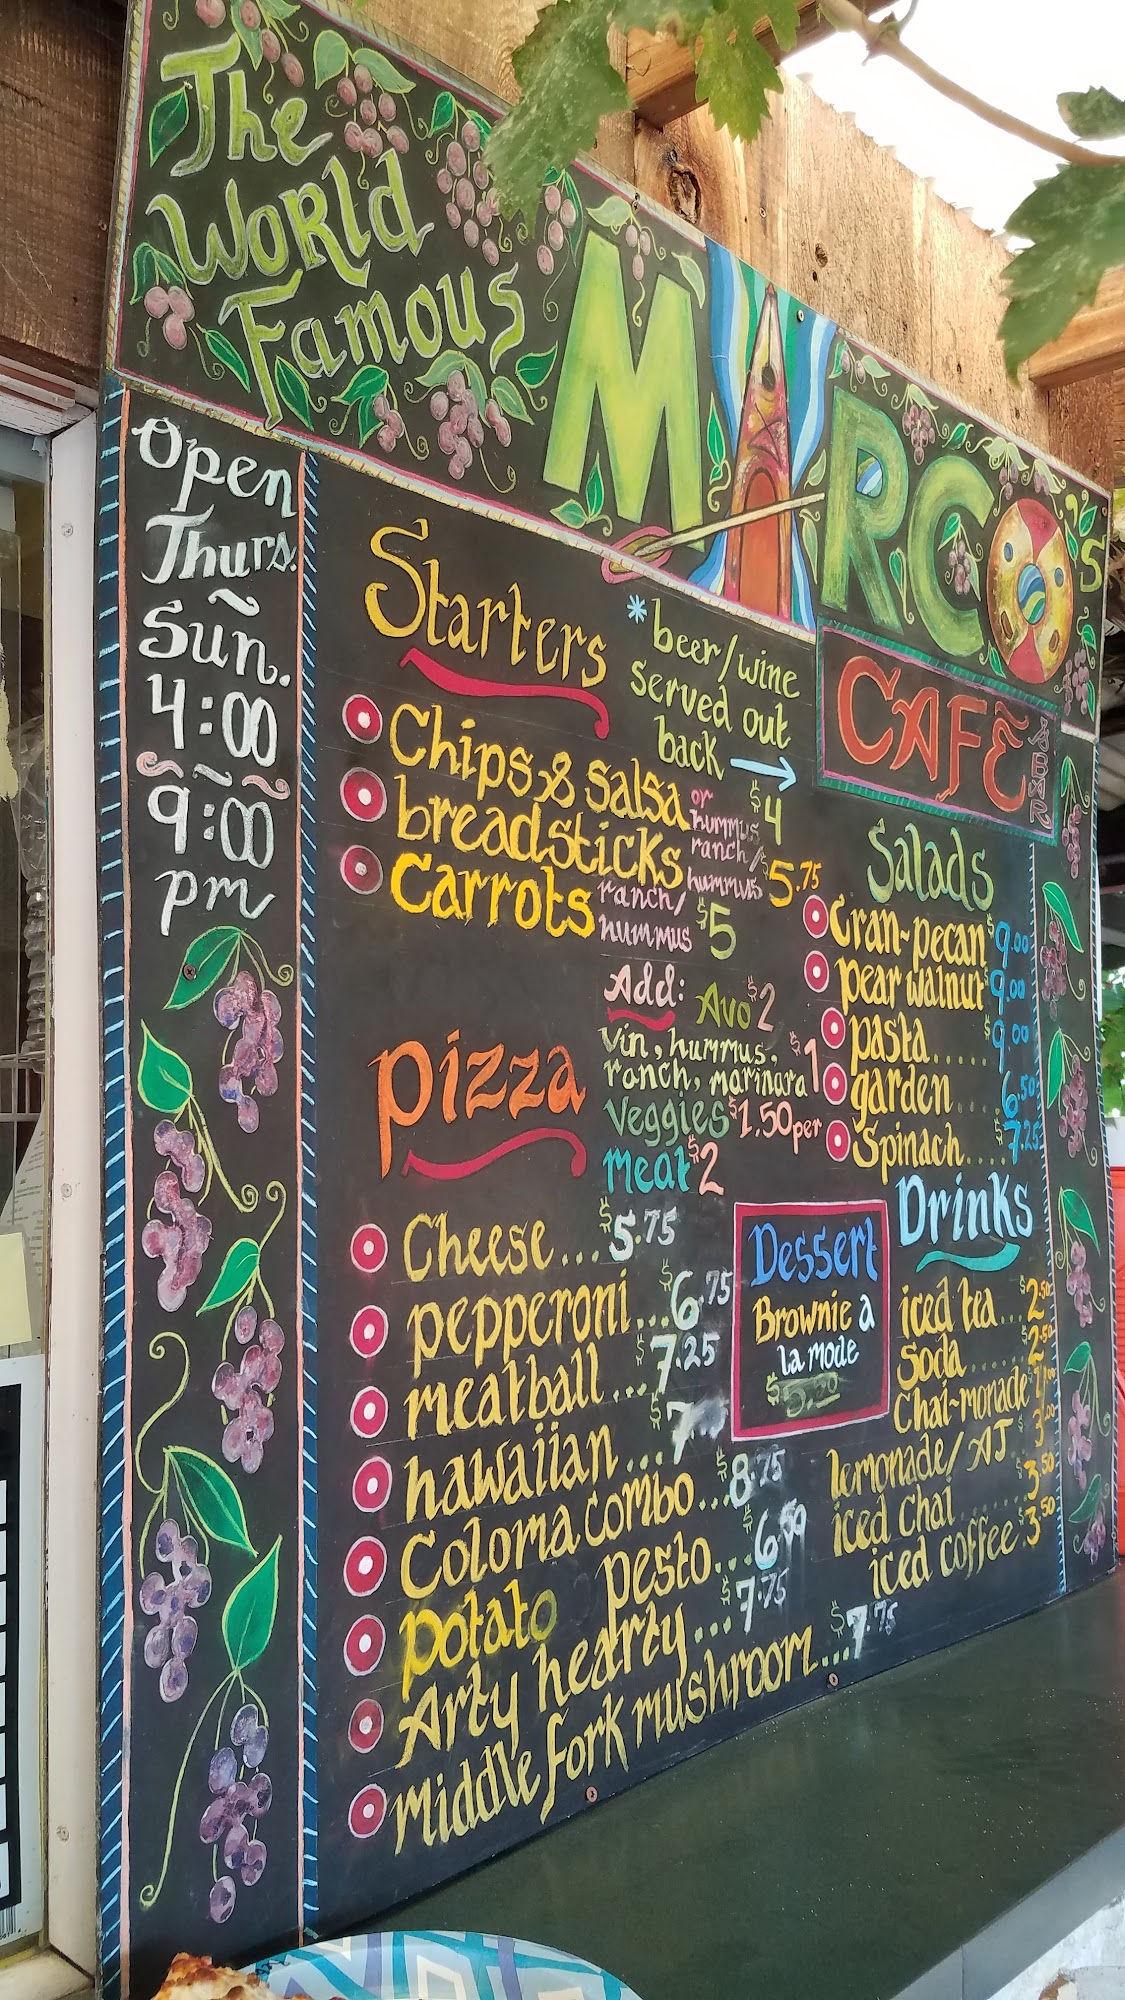 The
World
Famous
MARCO's
CAFĒ
& BAR
Open
Thurs.
~
Sun.
4:00
~
9:00
pm
Starters
*beer/wine
served out
back →
Chips & Salsa $4
breadsticks or hummus ranch/ $5.75
Carrots ranch/ hummus hummus $5
Add: Avo $2
Vin, hummus,
ranch, marinara $1
Veggies $1.50 per
meat $2
Salads
Cran-pecan $9.00
pear walnut $9.00
pasta..... $9.00
garden.... 6.50
Spinach.... $7.25
pizza
Cheese... $5.75
pepperoni... $6.75
meatball... $7.25
hawaiian... $7
Coloma combo... $8.75
potato pesto... $6.50
Arty hearty... $7.75
Middle fork mushroom... $7.75
Dessert
Brownie a
la mode
$5.00
Drinks
iced tea... $2.50
Soda...... $2.50
Chai-monade
lemonade/AJ.. $3.00
iced Chai....... $3.50
iced coffee. $3.50